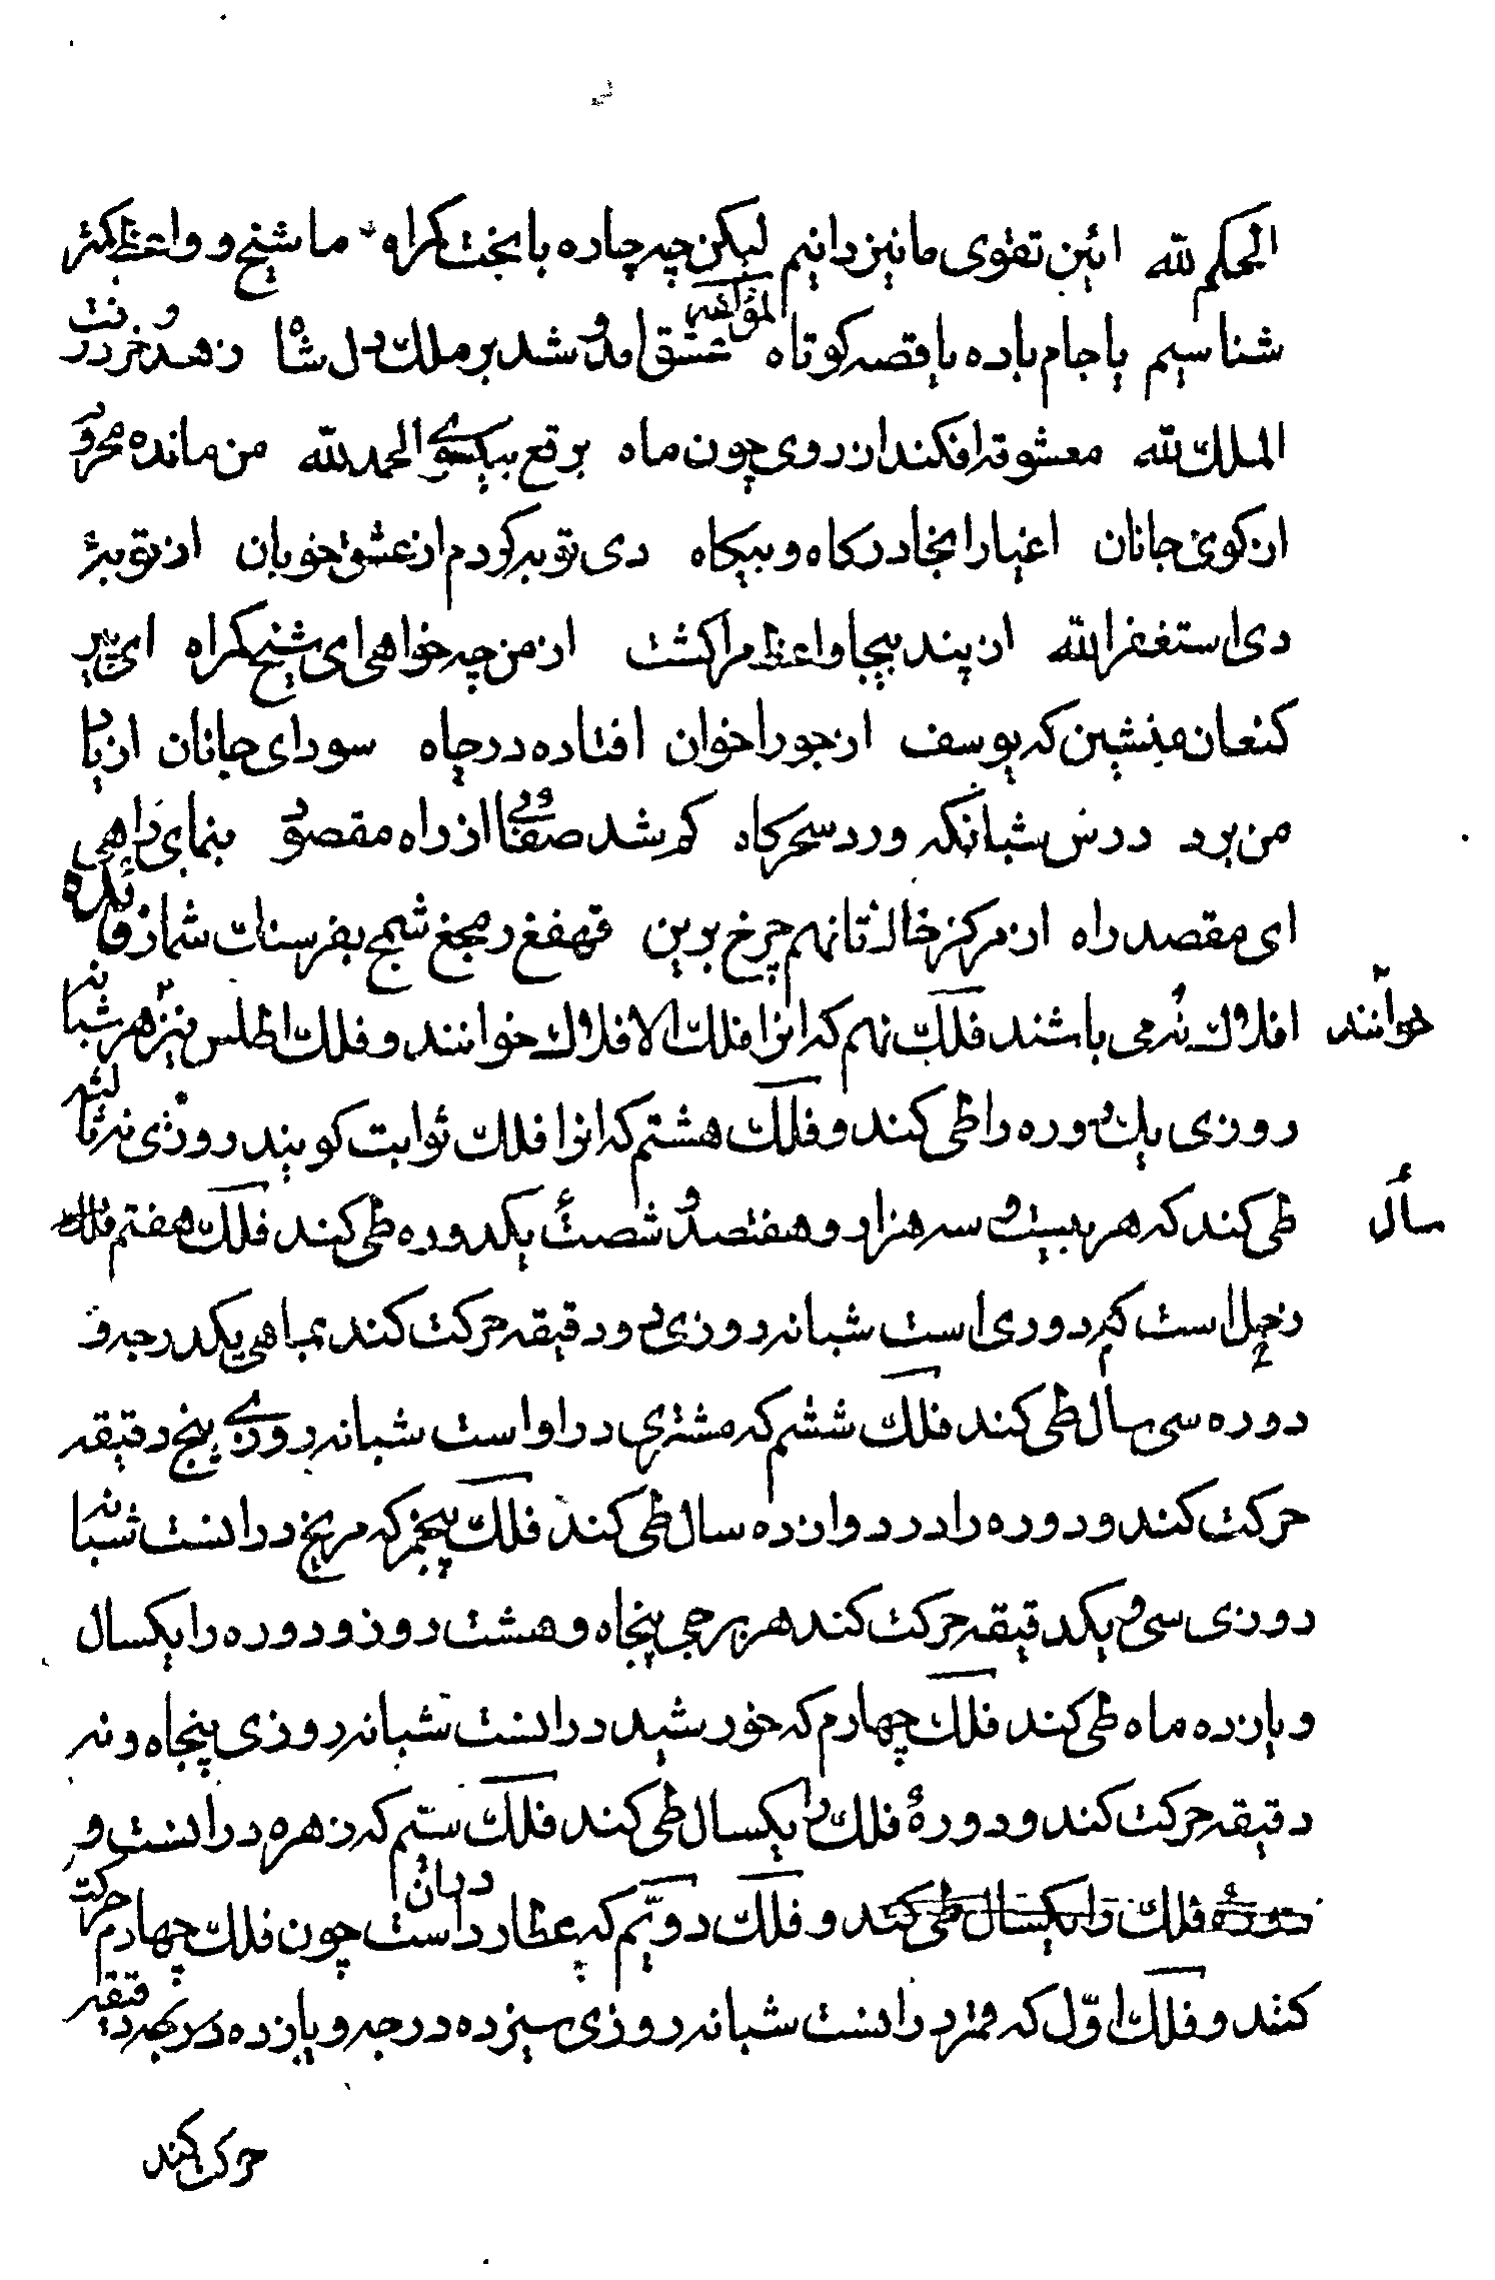 الحکم لله ائین تقوی ما نیز دانیم لیکن چه چاره با بخت کمراه ما شیخ و واعظ کمتر
شناسیم یا جام باده یا قصه کوتاه لمؤلفه عشق امد و شد بر ملک دل شاه زهد و خرد رفت
الملک لله معشوقه افکند از روی چون ماه برقع بیکسوی الحمد لله من مانده محروم
از کوی جانان اغیار انجا در کاه و بیکاه دی توبه کردم از عشق خوبان از توبهٔ
دی استغفرالله از پند بیجا واعظ مرا کشت از من چه خواهی ای شیخ کمراه ای پیر
کنعان منشین که یوسف از جور اخوان افتاده در چاه سودای جانان از یاد
من برد درس شبانکه ورد سحرکاه کم شد صفائی از راه مقصود بنمای راهی
ای مقصد راه از مرکز خاک تا نهم چرخ برین قهفغ رمجغ شمج بفرسنات شمار فائده
افلاک نه می باشند فلک نهم که انرا فلک الافلاک خوانند و فلک اطلس نیز هر شبانه
خوانند
روزی یک دوره را طی کند و فلک هشتم که انرا فلک ثوابت کویند روزی نه ثالثه
طی کند که هر بیست و سه هزار و هفتصد و شصت یکدوره طی کند فلک هفتم فلک
سال
زحل است که دوری است شبانه روزی دو دقیقه حرکت کند بماهی یکدرجه و
دوره سی سال طی کند فلک ششم که مشتری در او است شبانه روزی پنج دقیقه
حرکت کند و دوره را در دوازده سال طی کند فلک پنجم که مریخ در انست شبانه
روزی سی و یکدقیقه حرکت کند هر برجی پنجاه و هشت روز و دوره را یکسال
و یازده ماه طی کند فلک چهارم که خورشید در انست شبانه روزی پنجاه و نه
دقیقه حرکت کند و دورهٔ فلک را یکسال طی کند فلک سیم که زهره در انست و
دورهٔ فلک را یکسال طی کند و فلک دویم که عطارد در ان است چون فلک چهارم حرکت
کنند و فلک اوّل که قمر در انست شبانه روزی سیزده درجه و یازده دقیقه
حرکت کند